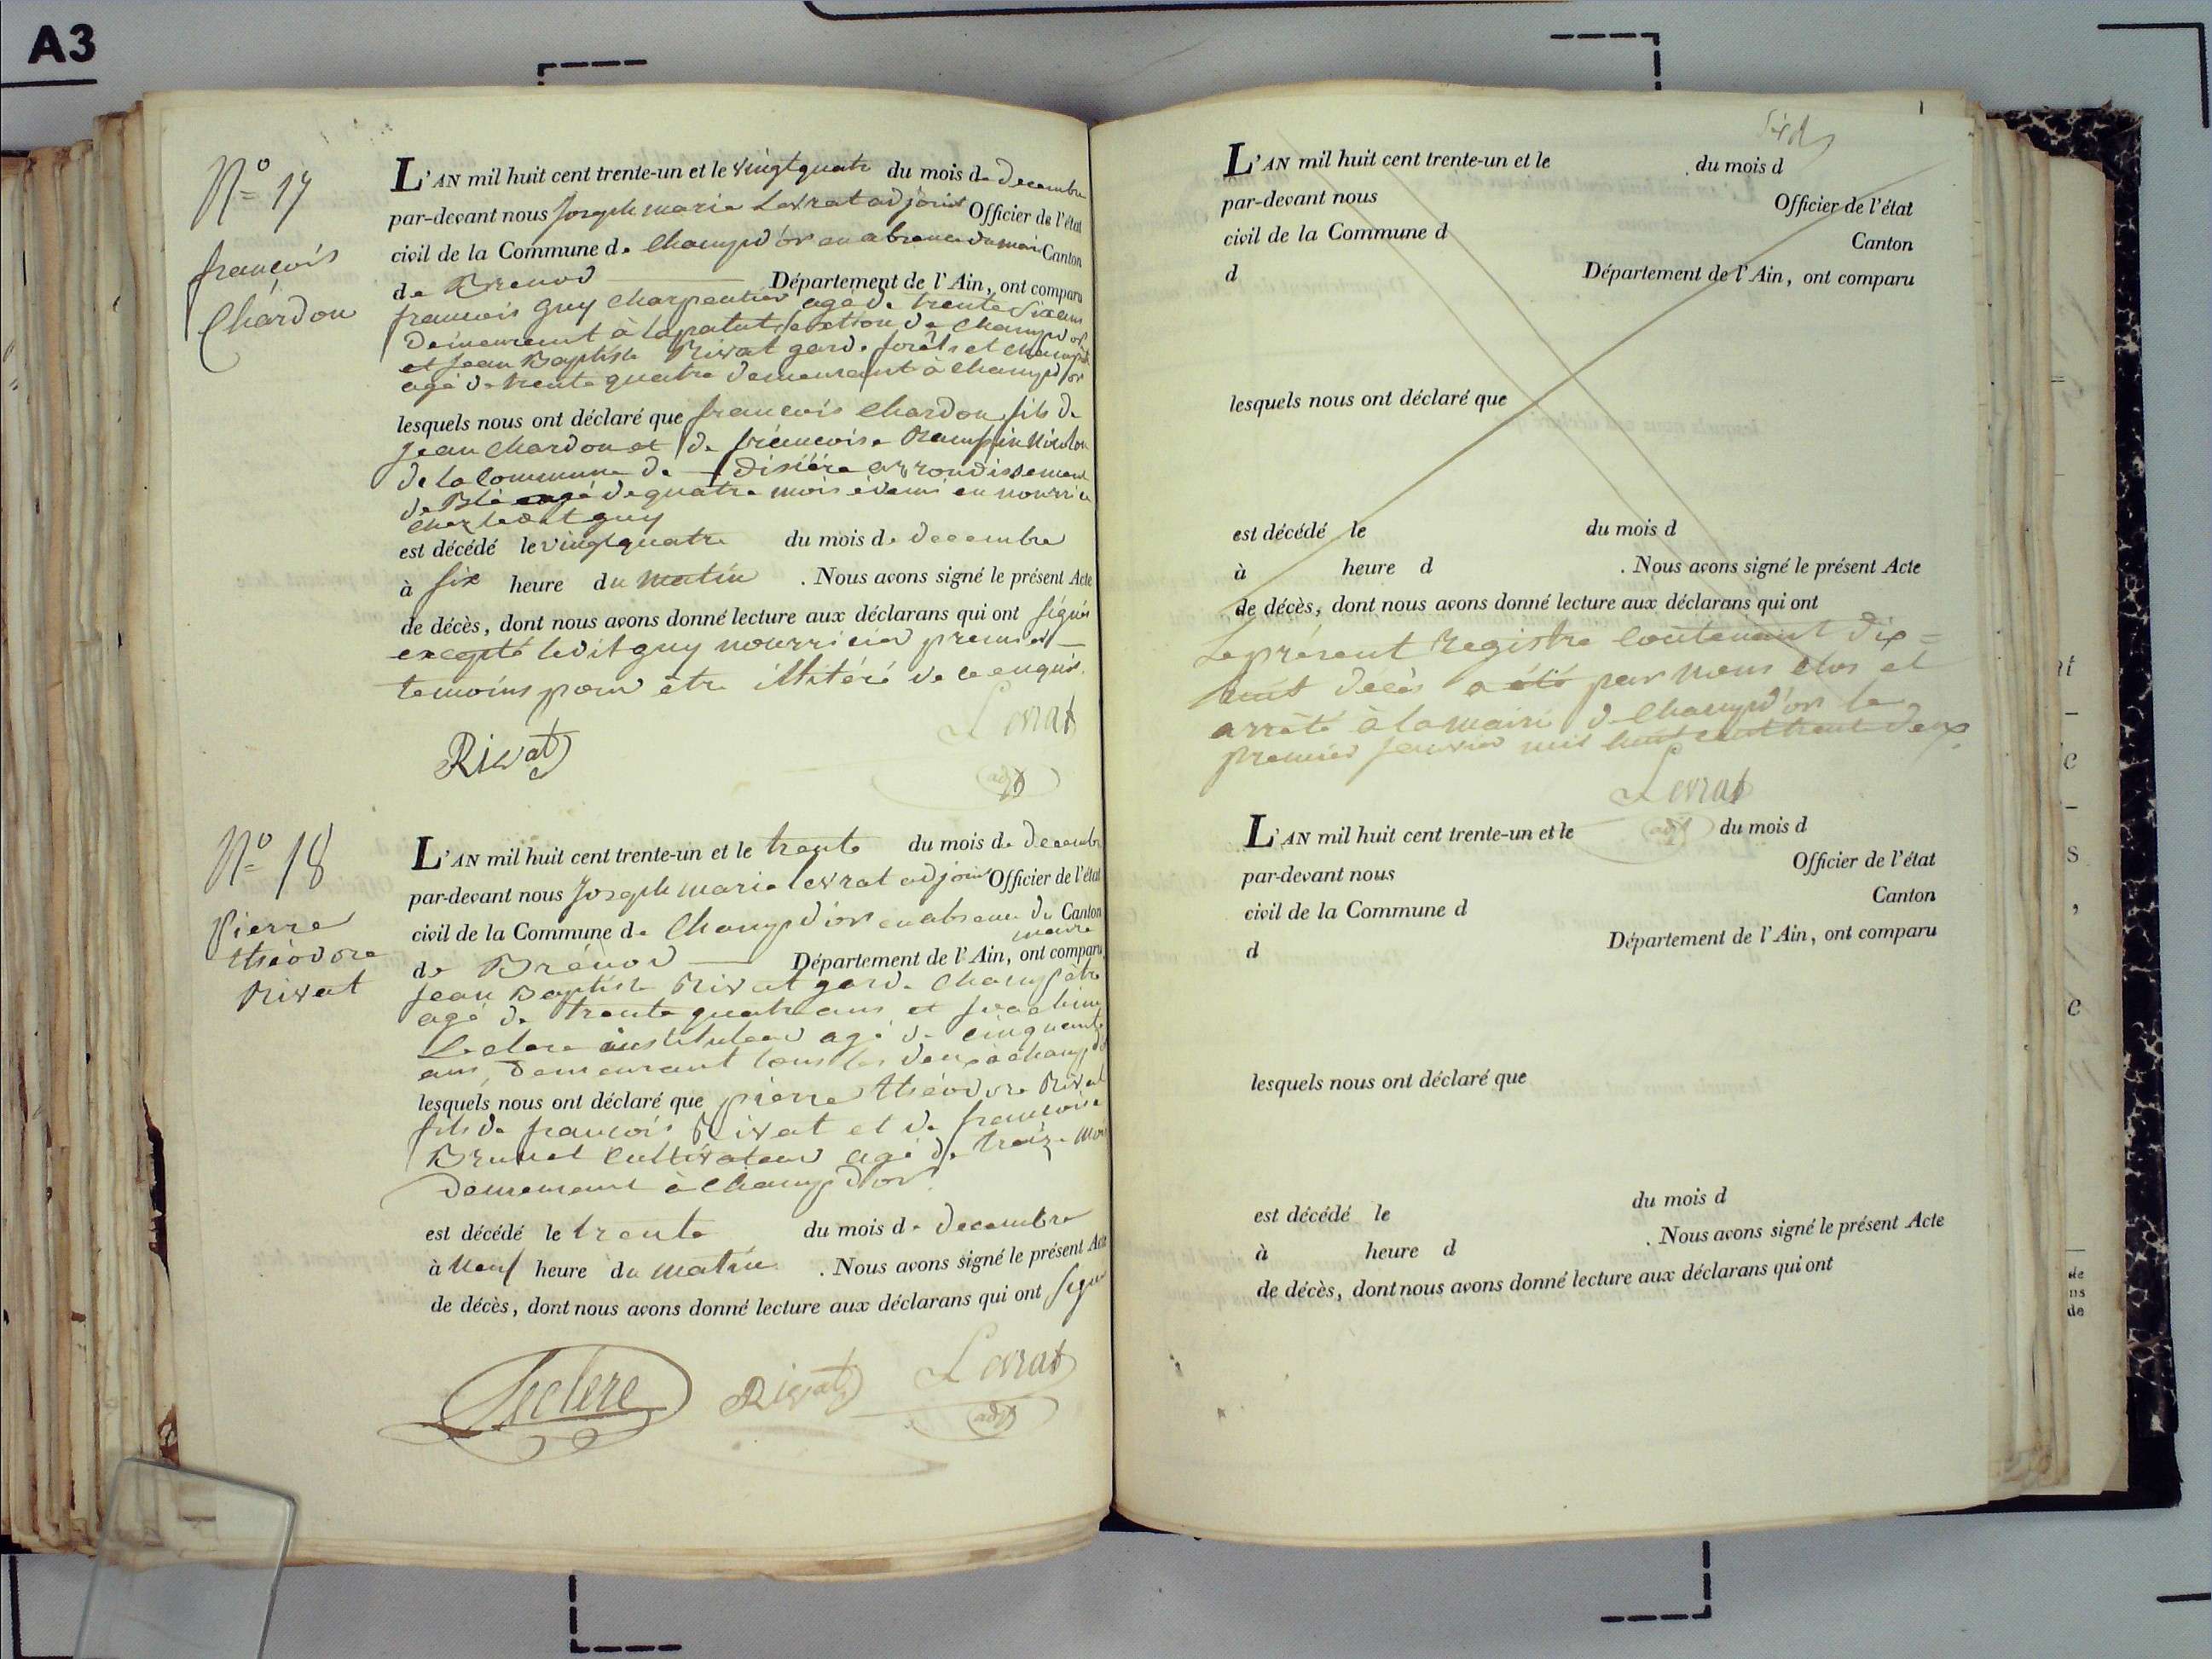 A3
N° 17
françois
Chardon
L'AN mil huit cent trente-un et le vingtquatre du mois de Decembre
par-devant nous Joseph marie Levrat adjoint Officier de l'état
civil de la Commune de Champd'or en absence du maire Canton
de Brenod Département de l'Ain, ont comparu
francois Guy Charpentier agé de trente Six ans
Demeurant à section de Champd'or
et Jean Baptiste Rivat garde forêts et champêtre
agé de trente quatre demeurant à Champd'or
lesquels nous ont déclaré que francois Chardon fils de
Jean Chardon et de francoise
de la Commune de arrondissement
de agé de quatre mois é demi en nourrice
chez ledit guy
est décédé le vingtquatre du mois de decembre
à Six heure du matin . Nous avons signé le présent Acte
de décès, dont nous avons donné lecture aux déclarans qui ont signés
excepté ledit guy nourricier premier
temoins pour être illitéré de ce enquis.
Rivat
Levrat
adjt
N° 18
Pierre
théodore
Rivat
L'AN mil huit cent trente-un et le trente du mois de decembre
par-devant nous Joseph marie levrat adjoint Officier de l'état
civil de la Commune de Champd'or en absence du Canton
maire
de Brénod Département de l'Ain, ont comparu
Jean Baptiste Rivat garde Champêtre
agé de trente quatre ans et joachim
Leclerc instituteur agé de cinquante
ans, Demeurant tous les deux à champd'or
lesquels nous ont déclaré que pierre théodore Rivat
fils de francois Rivat et de francoise
Brunet Cultivateur agé de treize mois
Demeurant à Champd'or
est décédé le trente du mois de decembre
à Neuf heure du matin . Nous avons signé le présent Acte
de décès, dont nous avons donné lecture aux déclarans qui ont signé
Leclerc
Rivat
Levrat
adjt
L'AN mil huit cent trente-un et le du mois d
par-devant nous Officier de l'état
civil de la Commune d Canton
d Département de l'Ain, ont comparu
lesquels nous ont déclaré que
est décédé le du mois d
à heure d . Nous avons signé le présent Acte
de décès, dont nous avons donné lecture aux déclarans qui ont
Le présent Registre Contenant dix=
huit decès a été par nous clos et
arrêté à la mairie de Champd'or le
premier Janvier mil huit cent trente deux.
Levrat
adjt
L'AN mil huit cent trente-un et le du mois d
par-devant nous Officier de l'état
civil de la Commune d Canton
d Département de l'Ain, ont comparu
lesquels nous ont déclaré que
est décédé le du mois d
à heure d . Nous avons signé le présent Acte
de décès, dont nous avons donné lecture aux déclarans qui ont